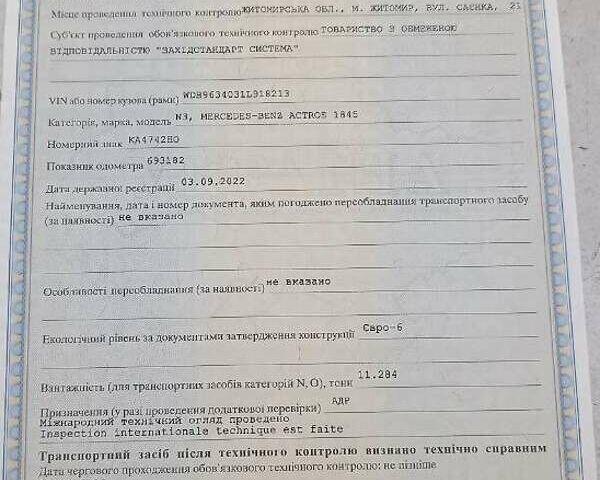 Місце проведення технічного контролю ЖИТОМИРСЬКА ОБЛ., М. ЖИТОМИР, ВУЛ. САЄНКА, 21
Суб'єкт проведення обов'язкового технічного контролю ТОВАРИСТВО З ОБМЕЖЕНОЮ
ВІДПОВІДАЛЬНІСТЮ "ЗАХІДСТАНДАРТ СИСТЕМА"
VIN або номер кузова (рами) WDB9634031L918213
Категорія, марка, модель N3, MERCEDES-BENZ ACTROS 1845
Номерний знак КА4742НО
Показник одометра 693182
Дата державної реєстрації 03.09.2022
Найменування, дата і номер документа, яким погоджено переобладнання транспортного засобу
(за наявності) не вказано
Особливості переобладнання (за наявності) не вказано
Екологічний рівень за документами затвердження конструкції Євро-6
Вантажність (для транспортних засобів категорій N, O), тонн 11.284
Призначення (у разі проведення додаткової перевірки) АДР
Міжнародний технічний огляд проведено
Inspection internationale technique est faite
Транспортний засіб після технічного контролю визнано технічно справним
Дата чергового проходження обов'язкового технічного контролю: не пізніше